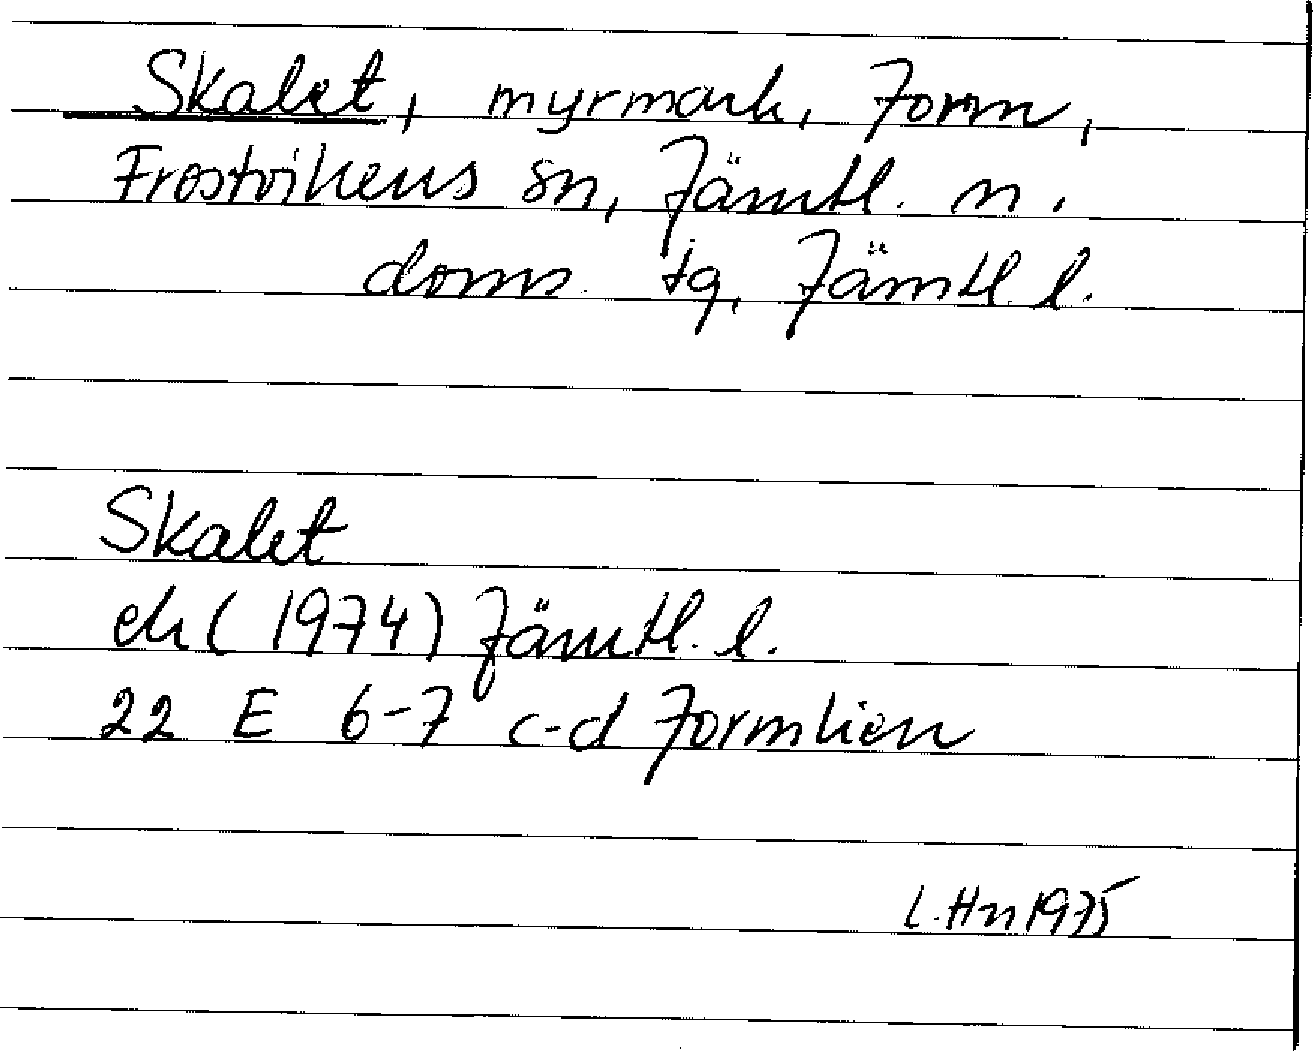 Skalet, myrmark, Jorm,
Frostvikens sn, Jämtl. n.
doms. tg, Jämtl. l.
Skalet
ek (1974) Jämtl. l.
22 E 6-7 c-d Jormlien
L.Hn 1975